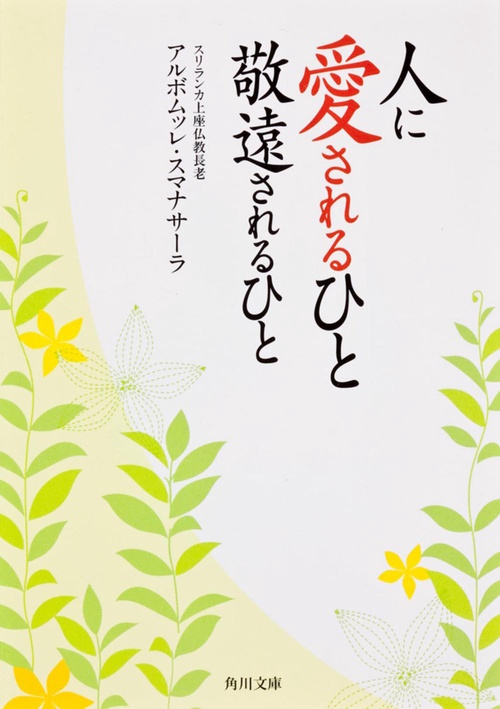 人に
愛されるひと
敬遠されるひと
スリランカ上座仏教長老
アルボムッレ・スマナサーラ
角川文庫